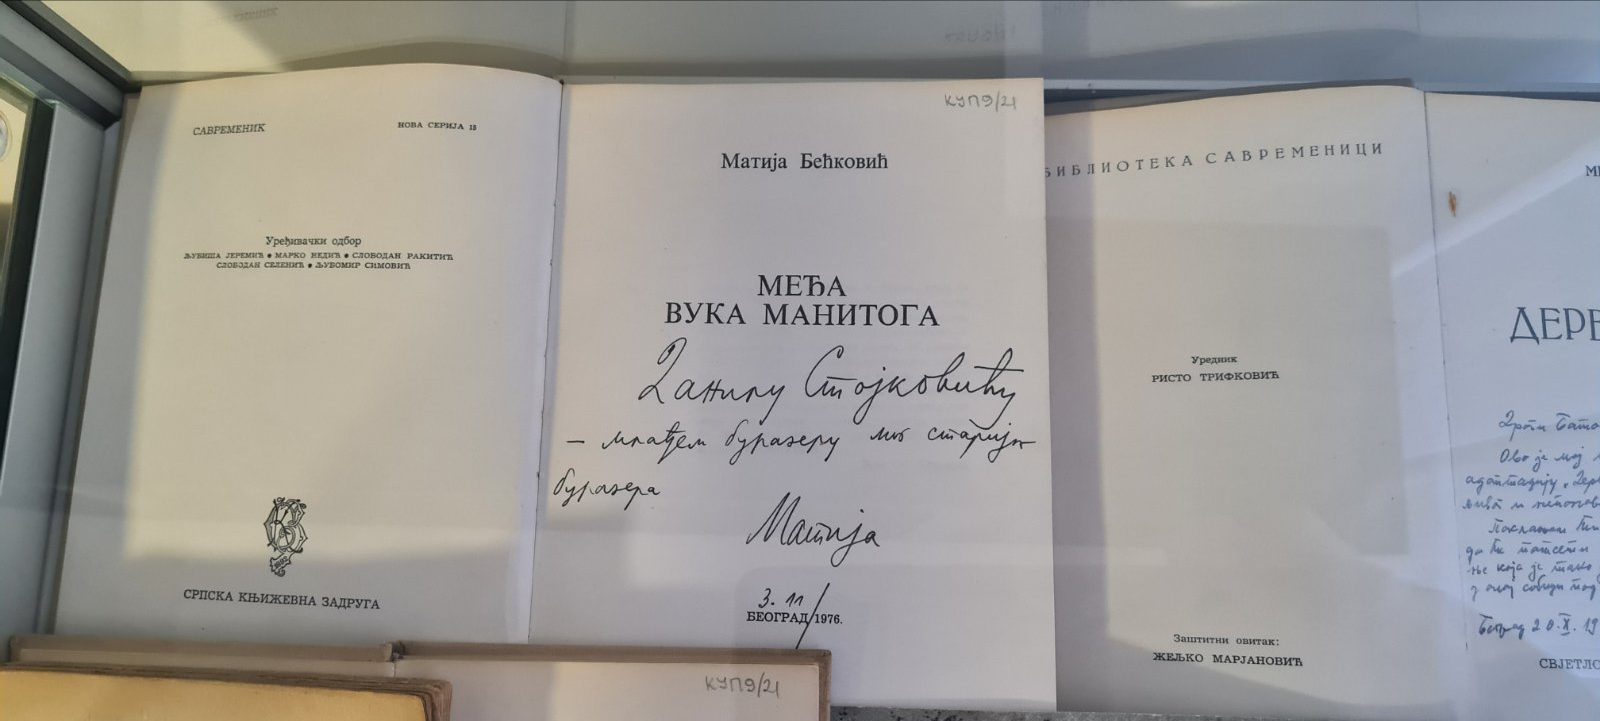 САВРЕМЕНИК
НОВА СЕРИЈА 18
Уређивачки одбор
ЉУБИША ЈЕРЕМИЋ • МАРКО НЕДИЋ • СЛОБОДАН РАКИТИЋ
СЛОБОДАН СЕЛЕНИЋ • ЉУБОМИР СИМОВИЋ
СРПСКА КЊИЖЕВНА ЗАДРУГА
КУП9/21
Матија Бећковић
МЕЂА
ВУКА МАНИТОГА
Данилу Стојковићу
– млађем буразеру од старијег
буразера
Матија
3. 11/
БЕОГРАД 1976.
КУП9/21
БИБЛИОТЕКА САВРЕМЕНИЦИ
Уредник
РИСТО ТРИФКОВИЋ
Заштитни овитак:
ЖЕЉКО МАРЈАНОВИЋ
ДЕРЕ
Ово је мој
адаптацију
да би
која је тако
СВЈЕТЛО